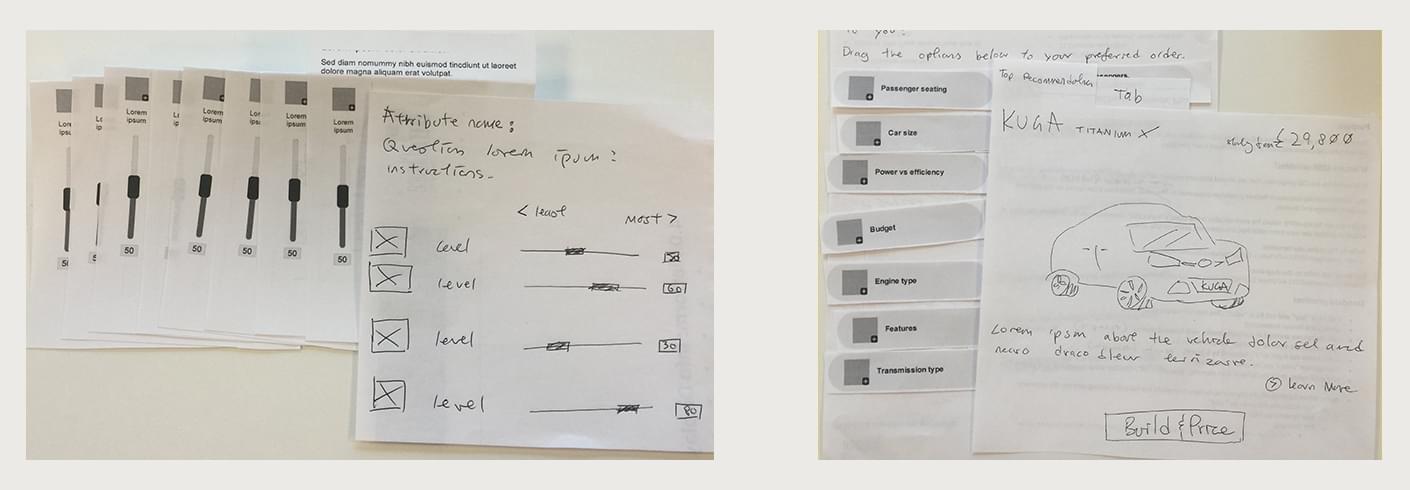 Sed diam nomummy nibh euismod tincidunt ut laoreet
dolore magna aliquam erat volutpat.
Lorem
ipsum
Lorem
ipsum
Lorem
ipsum
Lorem
ipsum
Lorem
ipsum
50
50
50
50
50
Attribute name:
Question lorem ipsum:
instructions.
< least
Most >
Level
Level
60
Level
30
Level
80
to you?
Drag the options below to your preferred order.
Passenger seating
Car size
Power vs efficiency
Budget
Engine type
Features
Transmission type
Top Recommendation
Tab
KUGA TITANIUM X
£29,800
KUGA
Lorem ipsm above the vehicle dolor sel and
draco
Learn More
Build & Price